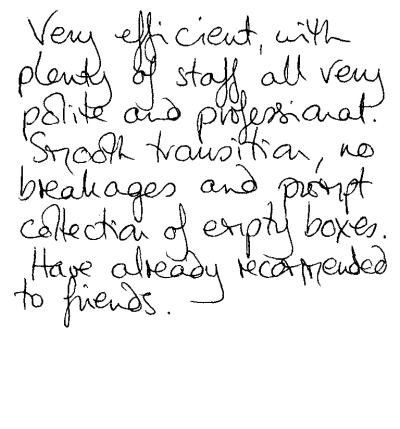 Very efficient, with
plenty of staff all very
polite and professional.
Smooth transition, no
breakages and prompt
collection of empty boxes.
Have already recommended
to friends.